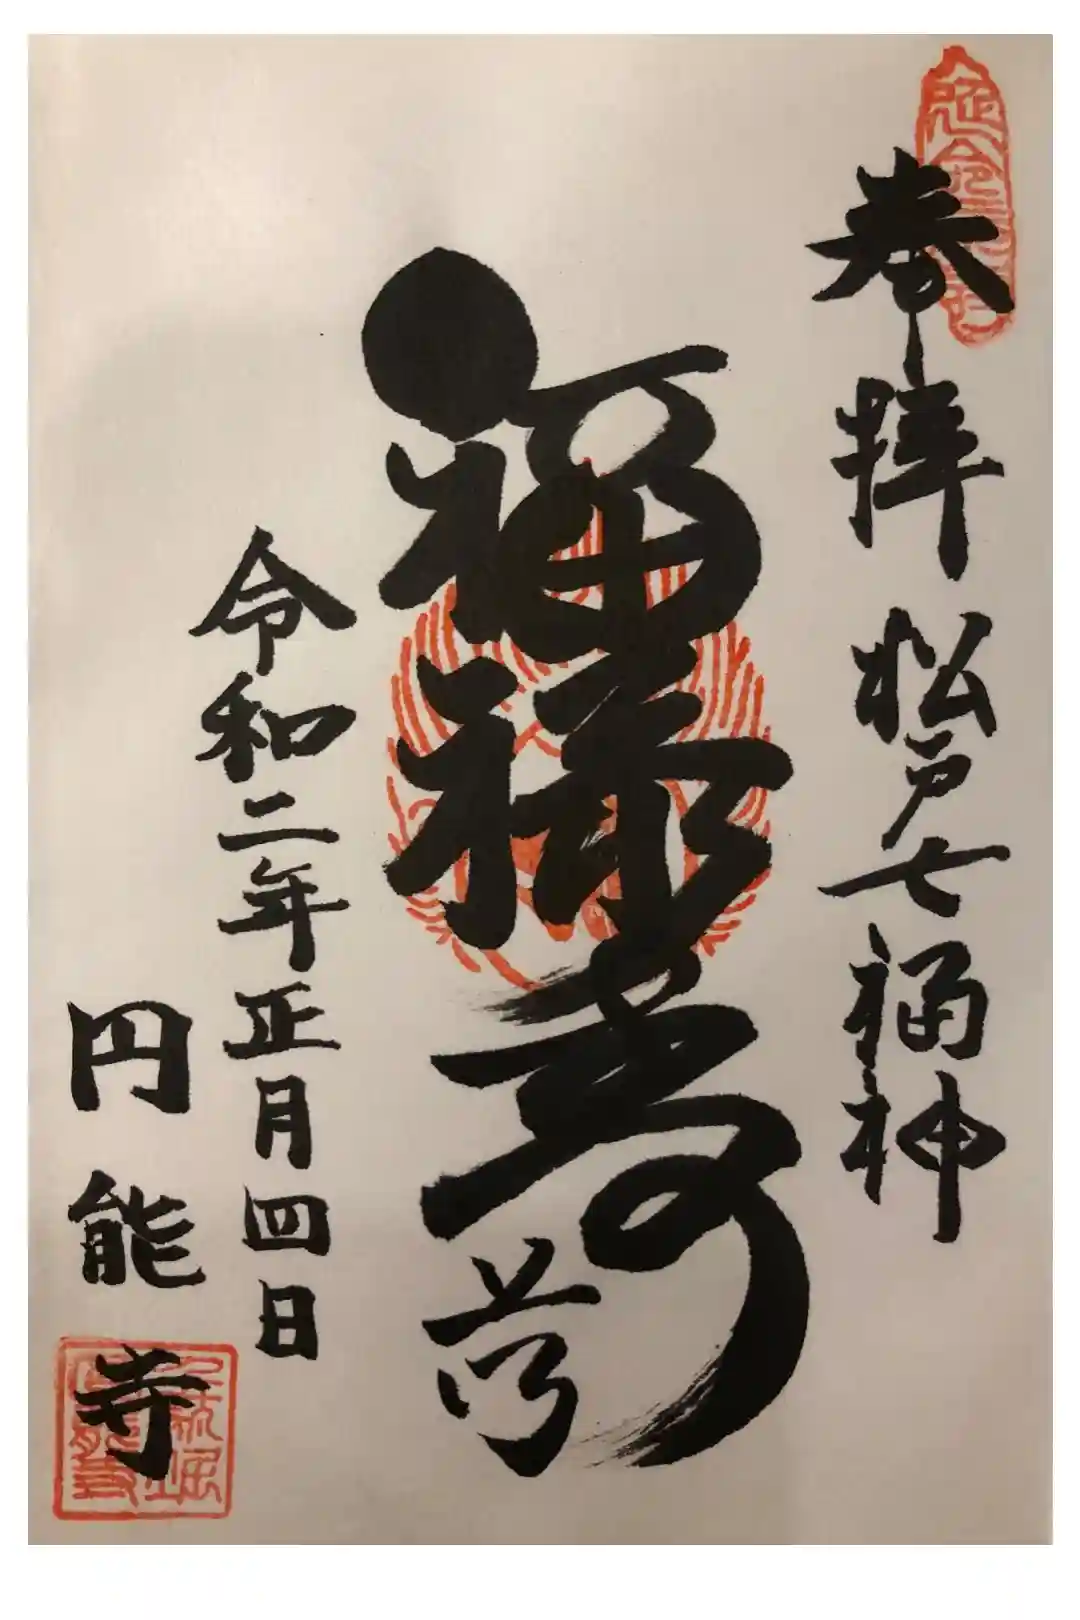 奉拝 松戸七福神
福禄寿
令和二年正月四日
円能寺